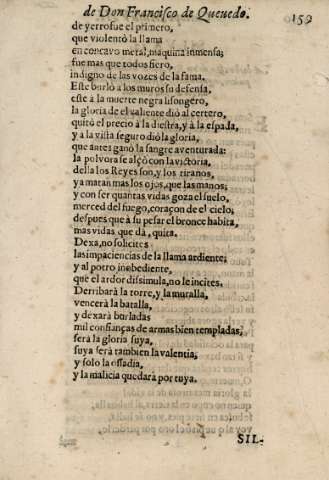 de Don Francisco de Quevedo.
159
de yerro fue el primero,
que violentò la llama
en concavo metal, maquina inmensa;
fue mas que todos fiero,
indigno de las vozes de la fama.
Este burló a los muros su defensa,
este à la muerte negra lisongèro,
la gloria del valiente diò al certero,
quitó el precio à la diestra, y à la espada,
y a la vista seguro diò la gloria,
que antes ganò la sangre aventurada:
la polvora se alçò con la victoria,
della los Reyes son, y los tiranos,
ya matan mas los ojos, que las manos;
y con ser quantas vidas goza el suelo,
merced del fuego, coraçon de el cielo,
despues que à su pesar el bronce habita,
mas vidas que dà, quita.
Dexa, no solicites
las impaciencias de la llama ardiente;
y al potro inobediente,
que el ardor dissimula, no le incites.
Derribarà la torre, y la muralla,
vencerà la batalla,
y dexarà burladas
mil confianças de armas bien templadas;
serà la gloria suya,
suya serà tambien la valentia;
y solo la ossadia,
y la malicia quedarà por tuya.
SIL-